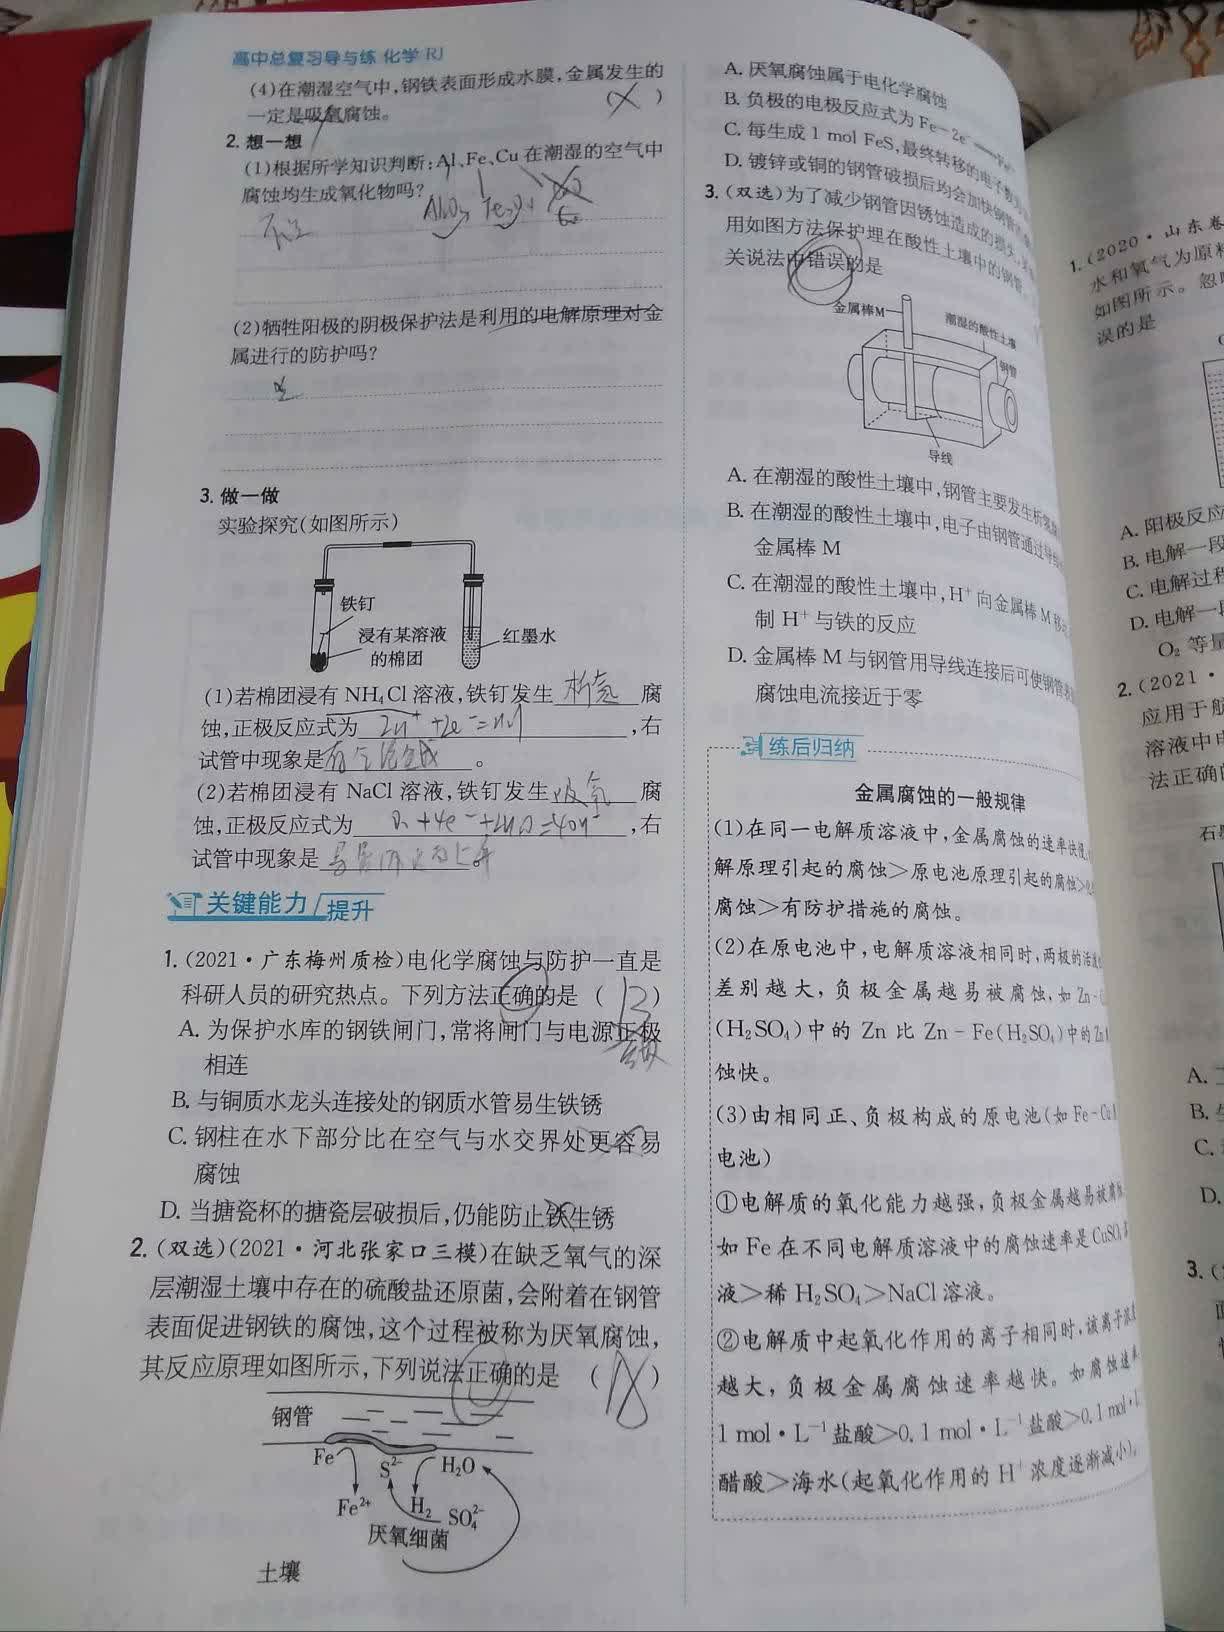 高中总复习导与练 化学 RJ
(4)在潮湿空气中,钢铁表面形成水膜,金属发生的
一定是吸氧腐蚀。 (×)
2. 想一想
(1)根据所学知识判断:Al、Fe、Cu在潮湿的空气中
腐蚀均生成氧化物吗?
(2)牺牲阳极的阴极保护法是利用的电解原理对金
属进行的防护吗?
3. 做一做
实验探究(如图所示)
铁钉
浸有某溶液
的棉团
红墨水
(1)若棉团浸有 NH₄Cl 溶液,铁钉发生 析氢 腐
蚀,正极反应式为 2H⁺+2e⁻=H₂↑ ,右
试管中现象是 有气泡生成 。
(2)若棉团浸有 NaCl 溶液,铁钉发生 吸氧 腐
蚀,正极反应式为 ,右
试管中现象是
关键能力 提升
1. (2021·广东梅州质检)电化学腐蚀与防护一直是
科研人员的研究热点。下列方法正确的是 ( B )
A. 为保护水库的钢铁闸门,常将闸门与电源正极
相连
B. 与铜质水龙头连接处的钢质水管易生铁锈
C. 钢柱在水下部分比在空气与水交界处更容易
腐蚀
D. 当搪瓷杯的搪瓷层破损后,仍能防止铁生锈
2. (双选)(2021·河北张家口三模)在缺乏氧气的深
层潮湿土壤中存在的硫酸盐还原菌,会附着在钢管
表面促进钢铁的腐蚀,这个过程被称为厌氧腐蚀,
其反应原理如图所示,下列说法正确的是 ( )
钢管
Fe
S²⁻
H₂O
Fe²⁺
H₂
SO₄²⁻
厌氧细菌
土壤
A. 厌氧腐蚀属于电化学腐蚀
B. 负极的电极反应式为 Fe-2e⁻
C. 每生成 1 mol FeS,最终转移的电子数
D. 镀锌或铜的钢管破损后均会加快钢管的
3. (双选)为了减少钢管因锈蚀造成的损失,
用如图方法保护埋在酸性土壤中的钢管
关说法中错误的是
金属棒M
潮湿的酸性土壤
钢管
导线
A. 在潮湿的酸性土壤中,钢管主要发生析氢
B. 在潮湿的酸性土壤中,电子由钢管通过导线
金属棒 M
C. 在潮湿的酸性土壤中,H⁺向金属棒 M 移
制 H⁺与铁的反应
D. 金属棒 M 与钢管用导线连接后可使钢管表
腐蚀电流接近于零
练后归纳
金属腐蚀的一般规律
(1)在同一电解质溶液中,金属腐蚀的速率快慢
解原理引起的腐蚀>原电池原理引起的腐蚀>
腐蚀>有防护措施的腐蚀。
(2)在原电池中,电解质溶液相同时,两极的活泼
差别越大,负极金属越易被腐蚀,如 Zn-
(H₂SO₄)中的 Zn 比 Zn-Fe(H₂SO₄)中的 Zn
蚀快。
(3)由相同正、负极构成的原电池(如 Fe-Cu
电池)
①电解质的氧化能力越强,负极金属越易被腐
如 Fe 在不同电解质溶液中的腐蚀速率是 CuSO₄
液>稀 H₂SO₄>NaCl 溶液。
②电解质中起氧化作用的离子相同时,该离子浓度
越大,负极金属腐蚀速率越快。如腐蚀速率
1 mol·L⁻¹盐酸>0.1 mol·L⁻¹盐酸>0.1 mol·L
醋酸>海水(起氧化作用的 H⁺浓度逐渐减小)。
1. (2020·山东卷
水和氧气为原料
如图所示。忽
误的是
A. 阳极反应
B. 电解一段
C. 电解过程
D. 电解一
O₂ 等量
2. (2021·
应用于
溶液中
法正确的
石
A.
B.
C.
D.
3.